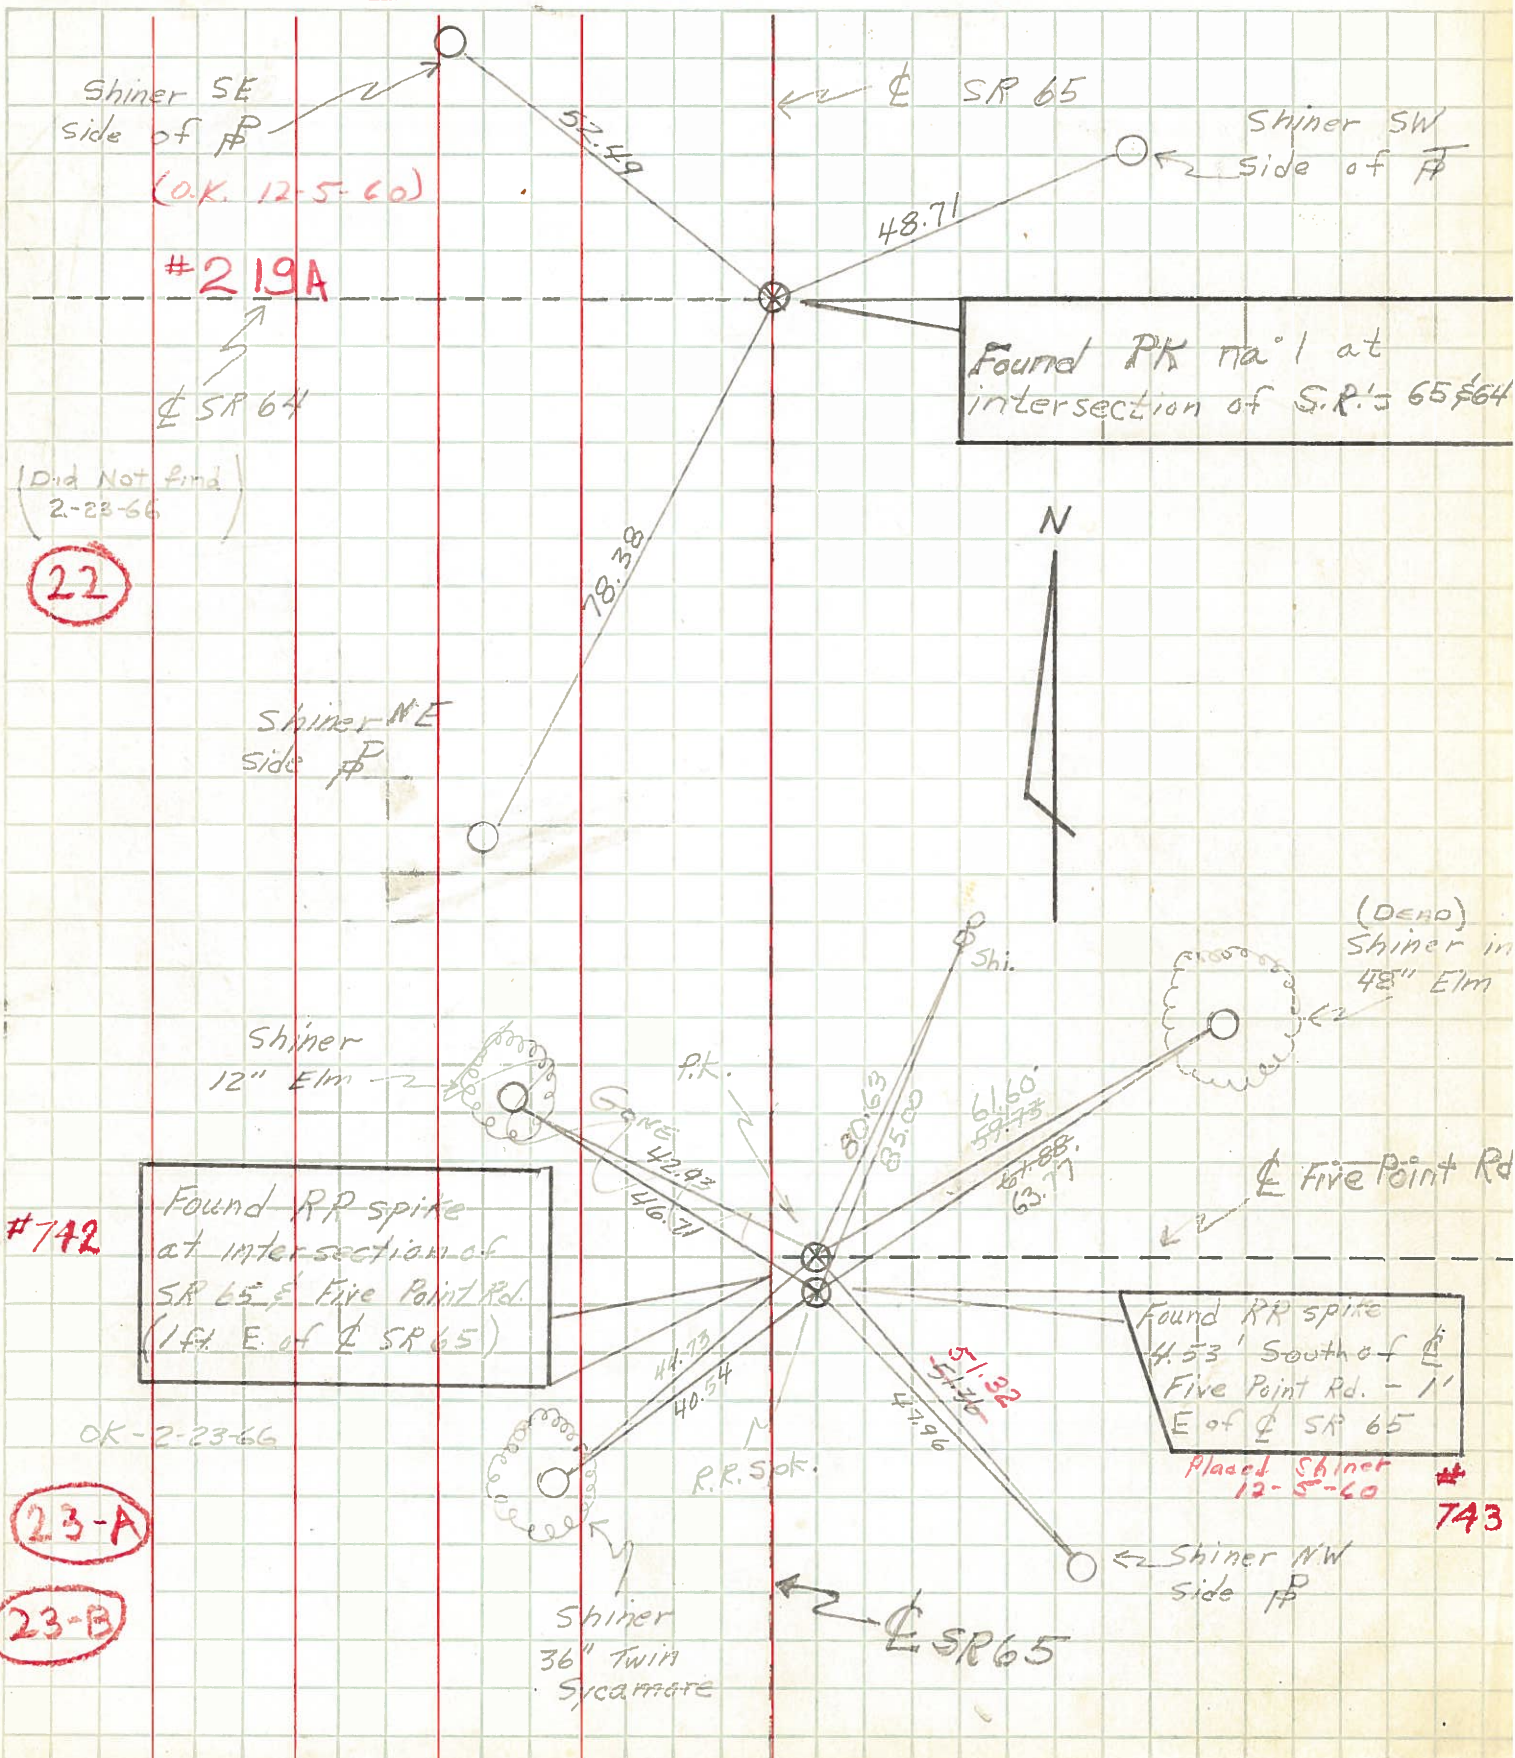 Shiner SE
side of PP
(O.K. 12-5-60)
52.49
℄ SR 65
Shiner SW
side of
48.71
#219A
℄ SR 64
Found PK nail at
intersection of S.R.'s 65 & 64
(Did Not find
2-23-66)
22
78.38
N
Shiner NE
side PP
Shi.
(DEAD)
Shiner in
48" Elm
Shiner
12" Elm
GONE
P.K.
42.93
46.71
80.63
85.00
61.60
59.73
63.77
℄ Five Point Rd
#742
Found RR spike
at intersection of
SR 65 & Five Point Rd.
(1 ft. E. of ℄ SR 65)
44.73
40.54
51.32
47.96
Found RR spike
4.53' South of ℄
Five Point Rd. - 1'
E of ℄ SR 65
Placed Shiner
12-5-60
#
743
OK-2-23-66
R.R. Spk.
23-A
23-B
Shiner NW
side PP
Shiner
36" Twin
Sycamore
℄ SR 65